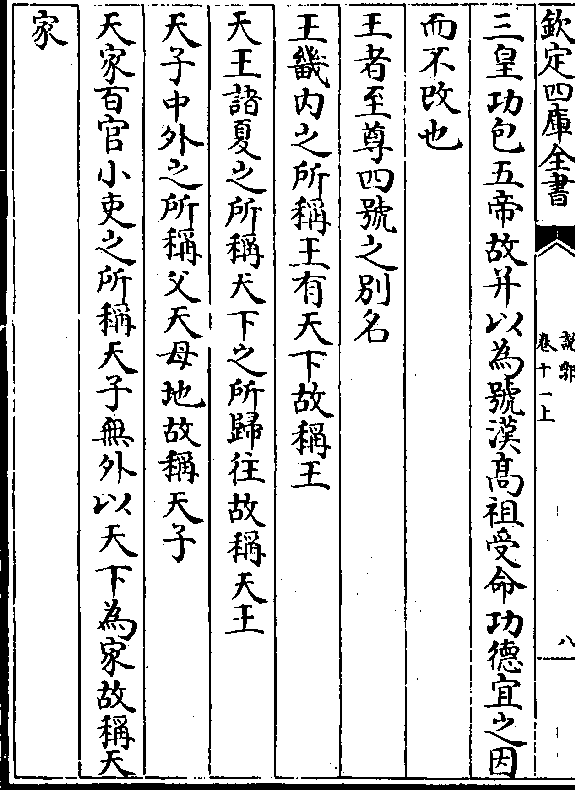 欽定四庫全書
說郛
卷十一上
八
三皇功包五帝故并以為號漢髙祖受命功德宜之因
而不改也
王者至尊四號之别名
王畿内之所稱王有天下故稱王
天王諸夏之所稱天下之所歸往故稱天王
天子中外之所稱父天母地故稱天子
天家百官小吏之所稱天子無外以天下為家故稱天
家